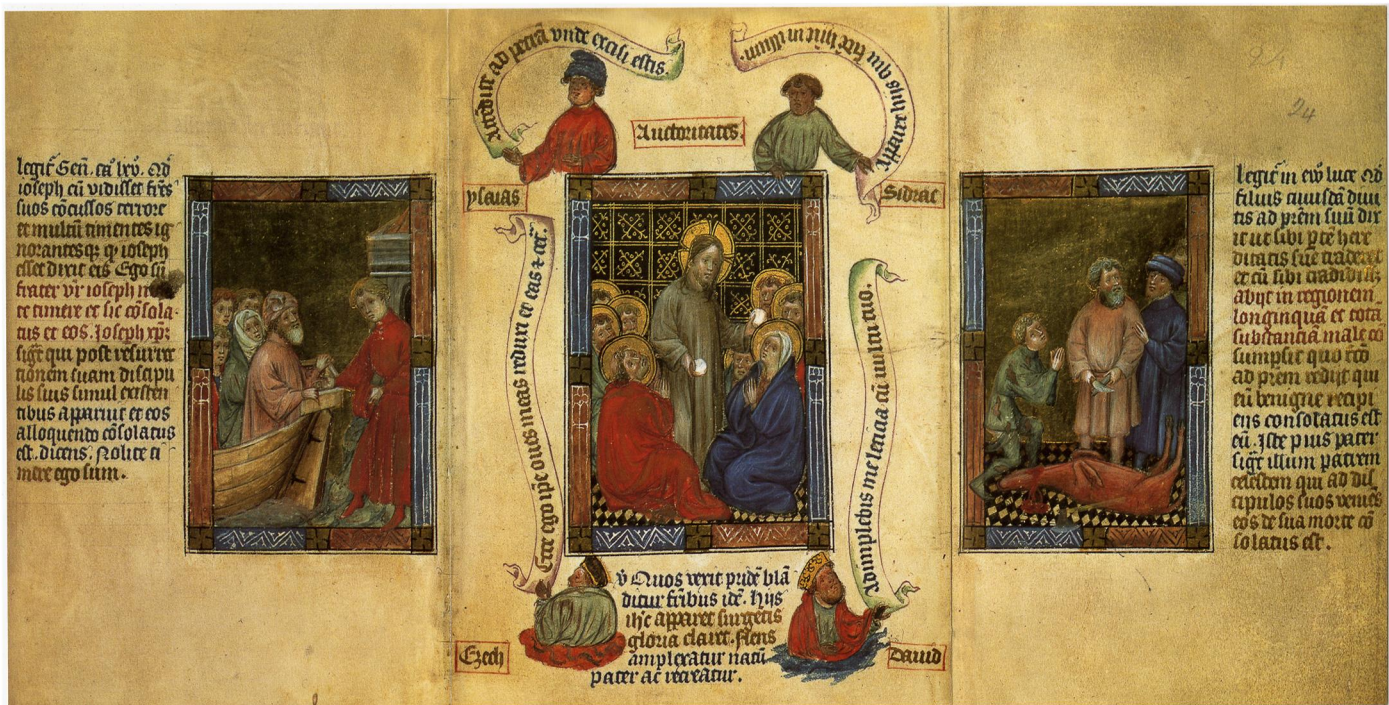 legit̄ Gen̄. ca͞ lxv. Qd̄
ioseph cū vidisset frēs
suos cōcussos terrore
et multū timentes ig
norantesq; q; ioseph
esset dixit eis Ego sū
frater vr̄ ioseph
te timere et sic cōsola
tus et eos. Ioseph xp̄m
sigt̄ qui post resurre
tionem suam discipu
lis suis simul existen
tibus apparuit et eos
alloquendo cōsolatus
est. dicens. Nolite ti
mere ego sum.
Attēdite ad petrā vnde excisi estis.
Auctoritates.
ysaias
Sidrac
Ecce ego ip̄e oues meas
Adimplebis me leticia cū uultu tuo.
Ezech
v̄ Quos terit pridē blā
ditur fr̄ibus idē. hijs
ih̄c apparet surgētis
gloria claret. flens
amplexatur natū
pater ac recreatur.
Dauid
24
legit̄ in ew̄ luce Qd̄
filius cuiusdā diui
tis ad prēm suū dix
it ut sibi ptē here
ditatis sue traderet
et cū sibi tradidiss;
abijt in regionem
longinquā et tota
substantiā male cō
sumpsit quo
ad prēm redijt qui
eū benigne recipi
ens consolatus est
eū. Iste pius pater
sigt̄ illum patrem
celestem qui ad dis
cipulos suos veniēs
eos de sua morte cō
solatus est.